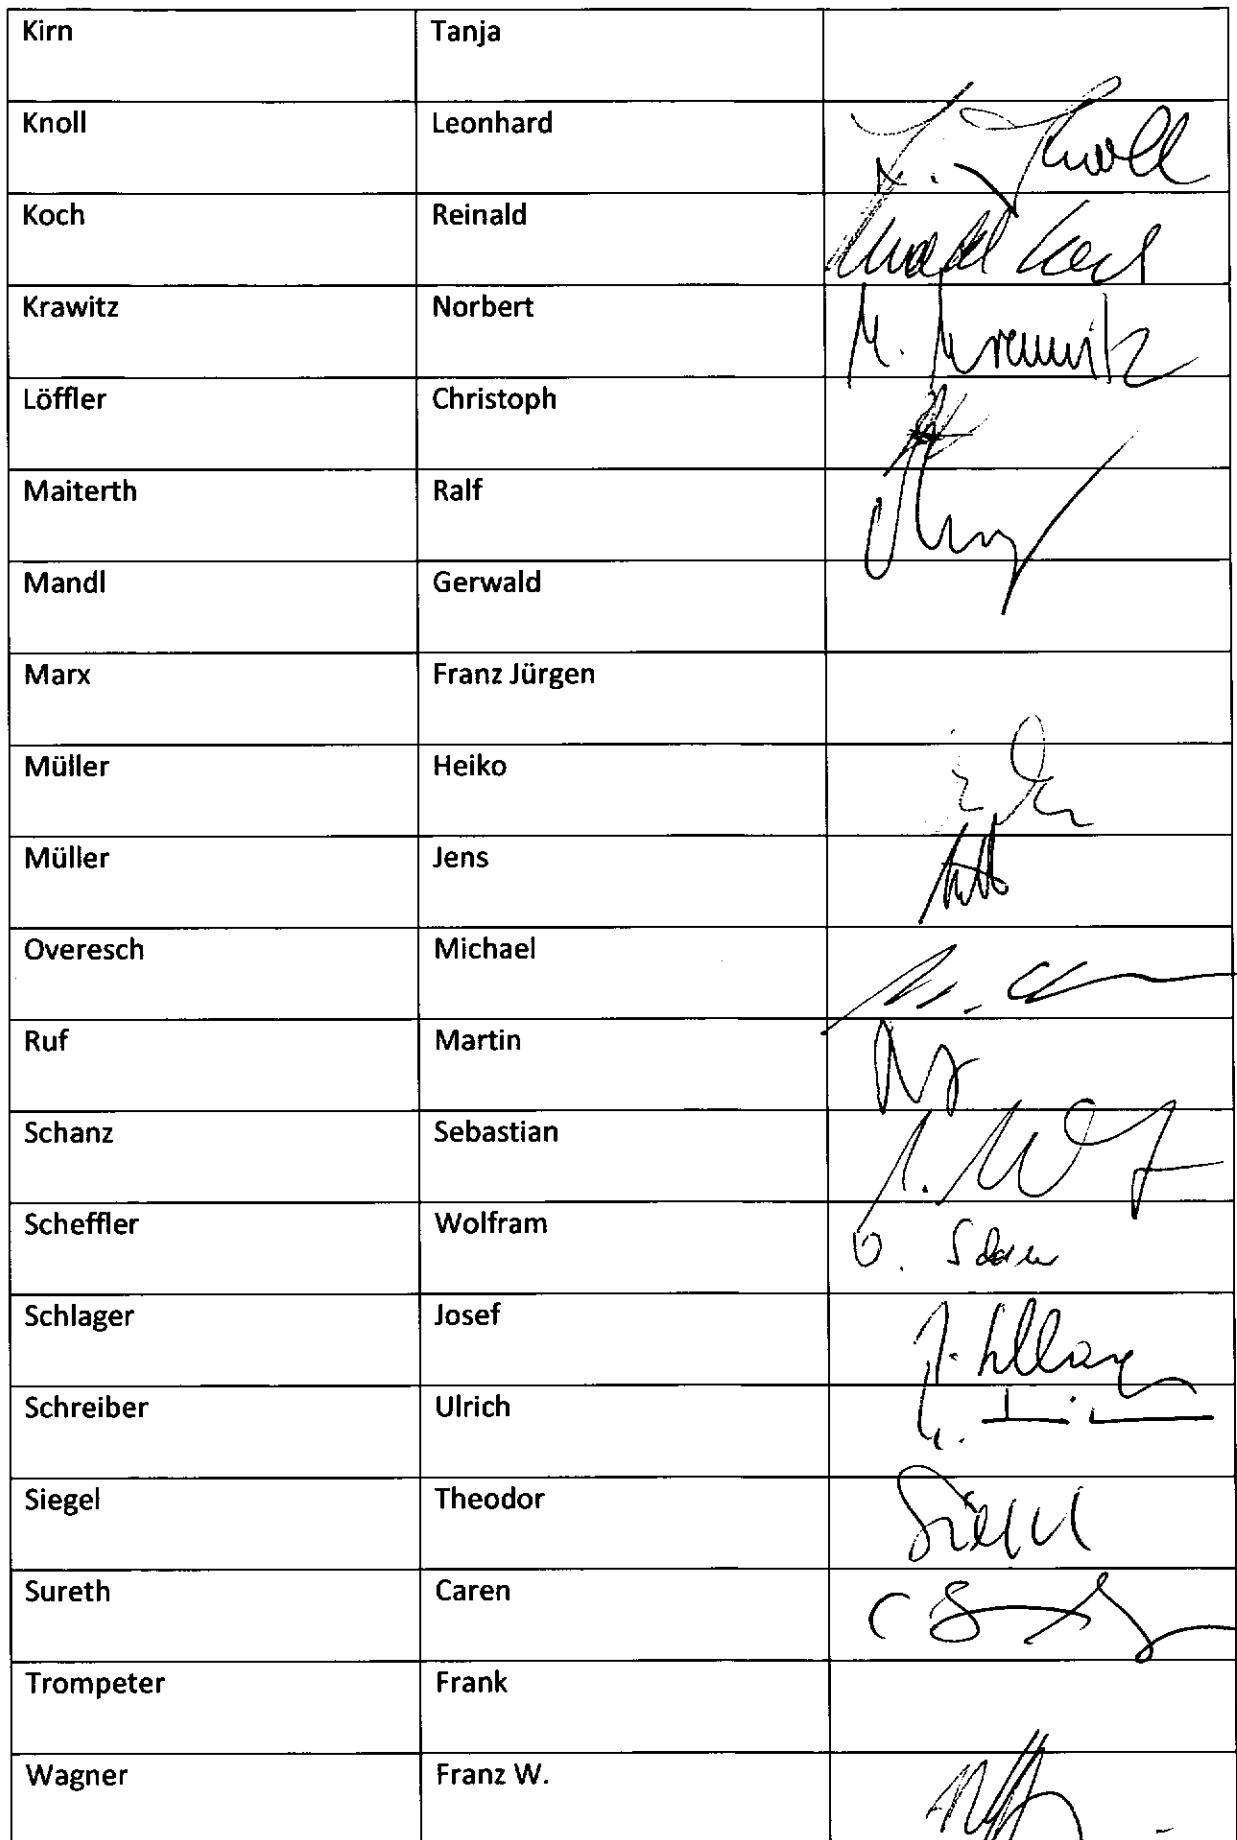 Kirn Tanja
Knoll Leonhard
Koch Reinald
Krawitz Norbert
Löffler Christoph
Maiterth Ralf
Mandl Gerwald
Marx Franz Jürgen
Müller Heiko
Müller Jens
Overesch Michael
Ruf Martin
Schanz Sebastian
Scheffler Wolfram
Schlager Josef
Schreiber Ulrich
Siegel Theodor Siegel
Sureth Caren
Trompeter Frank
Wagner Franz W.